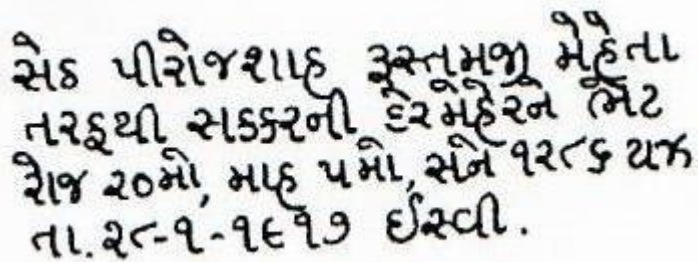 સેઠ પીરોજશાહ રૂસ્તમજી મેહેતા
તરફથી સકકરની દેરમેહેરને ભેટ
રોજ ૨૦મો, માહ ૫મો, સંને ૧૨૮૬ યઝ
તા. ૨૮-૧-૧૯૧૭ ઈસ્વી.